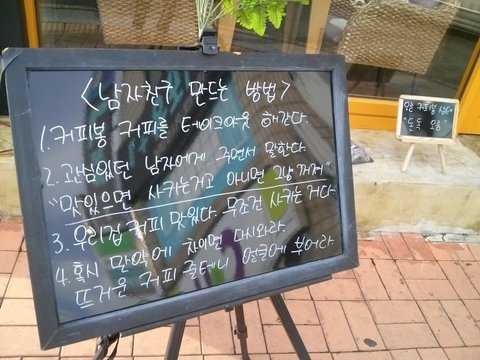 <남자친구 만드는 방법>
1. 커피봉 커피를 테이크아웃 해간다.
2. 관심있던 남자에게 주면서 말한다.
"맛있으면 사귀는거고 아니면 그냥 꺼져"
3. 우리집 커피 맛있다. 무조건 사귀는 거다.
4. 혹시 만약에 차이면 다시와라.
뜨거운 커피 줄테니 얼굴에 부어라
오늘 커피봉